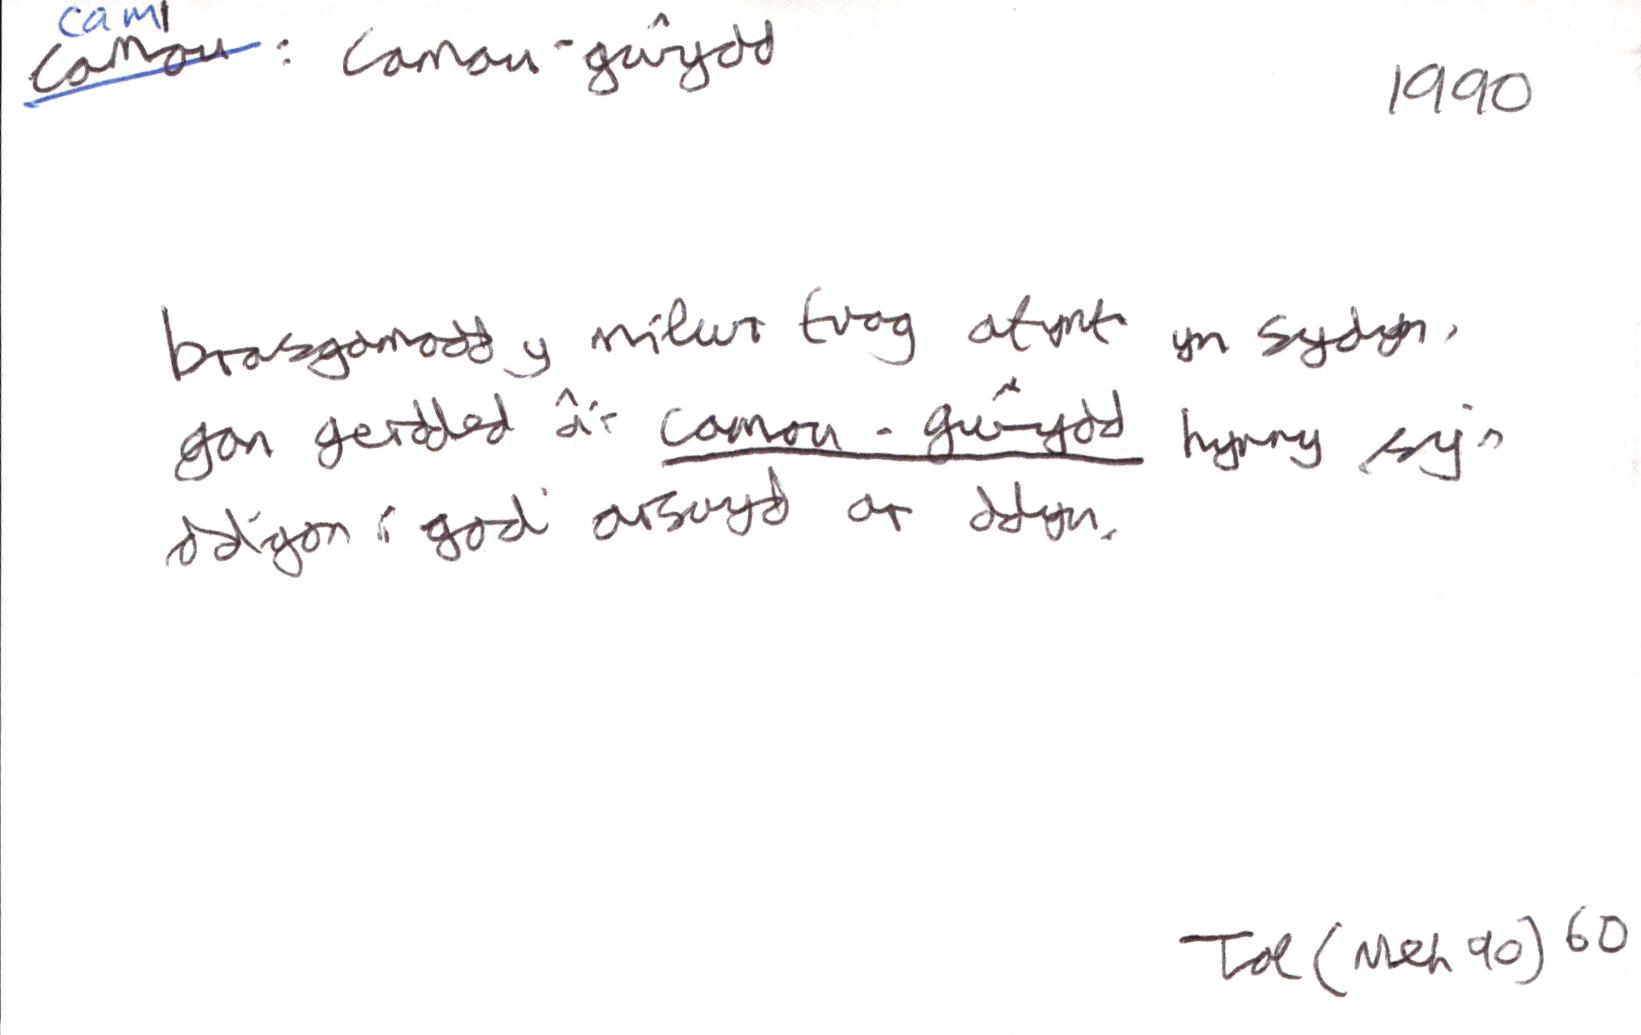 cam1
camau : camau-gŵydd
1990
brasgamodd y milwr tuag atynt yn sydyn,
gan gerdded â'r camau-gŵydd hynny sy'n
ddigon i godi arswyd ar ddyn.
Tal (Meh 90) 60